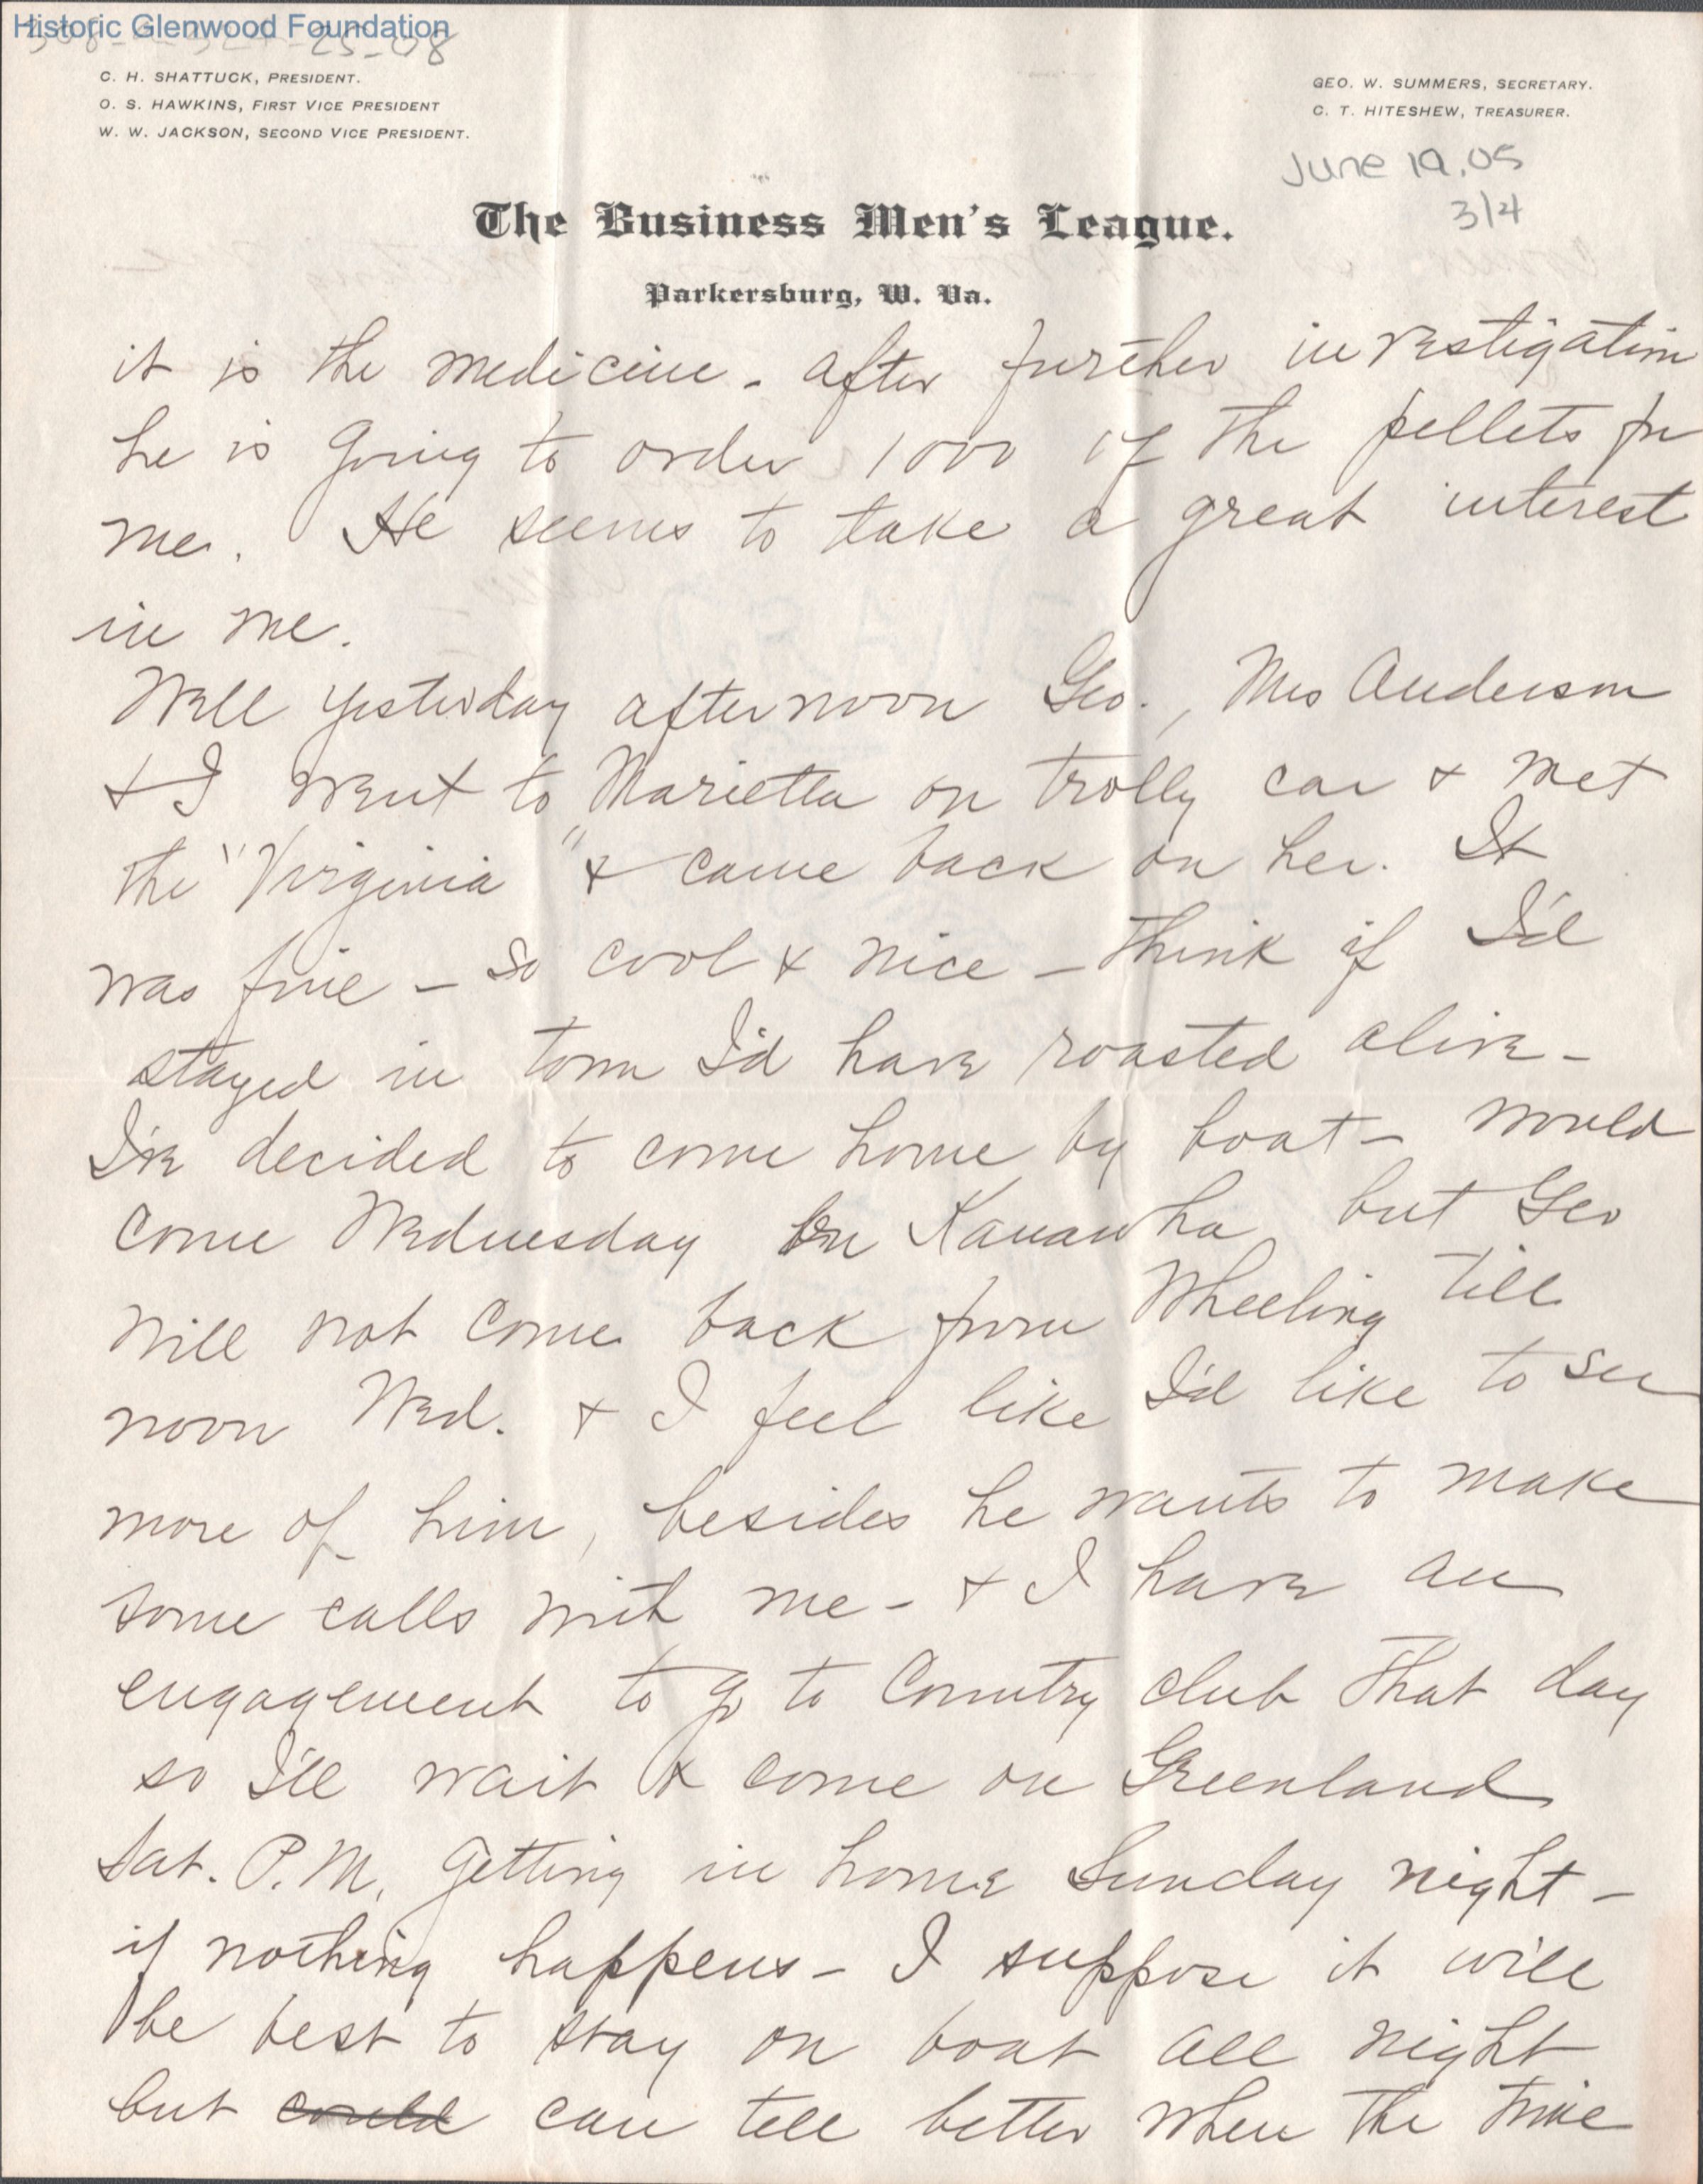 Historic Glenwood Foundation
C. H. SHATTUCK, PRESIDENT.
O. S. HAWKINS, FIRST VICE PRESIDENT
W. W. JACKSON, SECOND VICE PRESIDENT.
GEO. W. SUMMERS, SECRETARY.
C. T. HITESHEW, TREASURER.
June 19, 05
3/4
The Business Men's League.
Parkersburg, W. Va.
it is the medicine - after further investigation
he is going to order 1000 of the pellets for
me. He seems to take a great interest
in me.
Well yesterday afternoon Geo., Mrs Anderson
& I went to Marietta on trolly car & met
the "Virginia" & came back on her. It
was fine - so cool & nice - think if I'd
stayed in town I'd have roasted alive -
I've decided to come home by boat - would
come Wednesday on Kanawha but Geo
will not come back from Wheeling till
noon Wed. & I feel like I'd like to see
more of him, besides he wants to make
some calls with me - & I have an
engagement to go to Country club that day
so I'll wait & come on Greenland
Sat. P.M. getting in home Sunday night -
if nothing happens - I suppose it will
be best to stay on boat all night
but could can tell better when the time